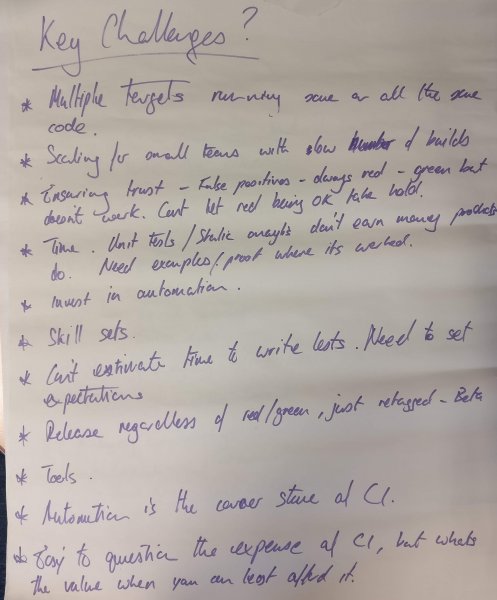 Key Challenges?
* Multiple targets running some or all the same
code.
* Scaling for small teams with slow of builds
* Ensuring trust - False positives - always red - green but
doesn't work. Can't let red being OK take hold.
* Time. Unit tests / Static analysis don't earn money products
do. Need examples / proof where its worked.
* Invest in automation.
* Skill sets.
* Can't estimate time to write tests. Need to set
expectations
* Release regardless of red/green, just retagged - Beta
* Tools.
* Automation is the corner stone of CI.
* Easy to question the expense of CI, but whats
the value when you can least afford it.